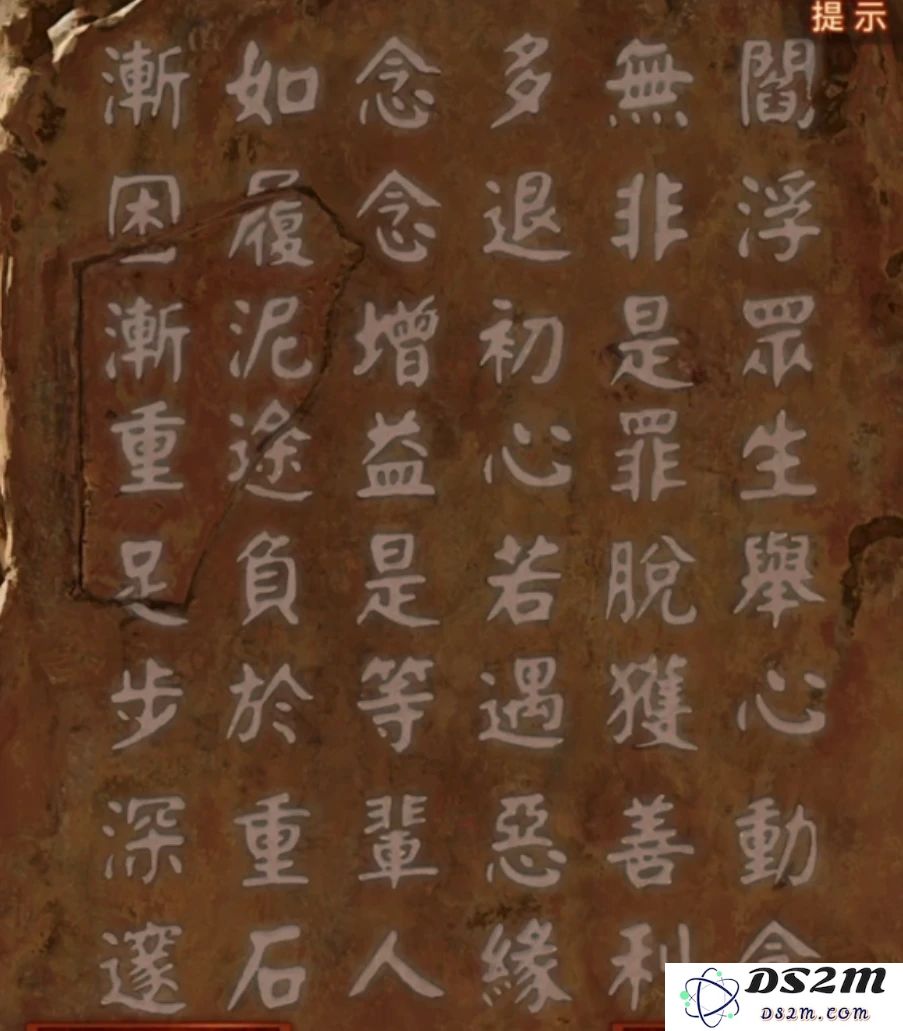 提示
閻浮眾生舉心動念
無非是罪脫獲善利
多退初心若遇惡緣
念念增益是等輩人
如履泥途負於重石
漸困漸重足步深邃
DS2M
DS2M.COM